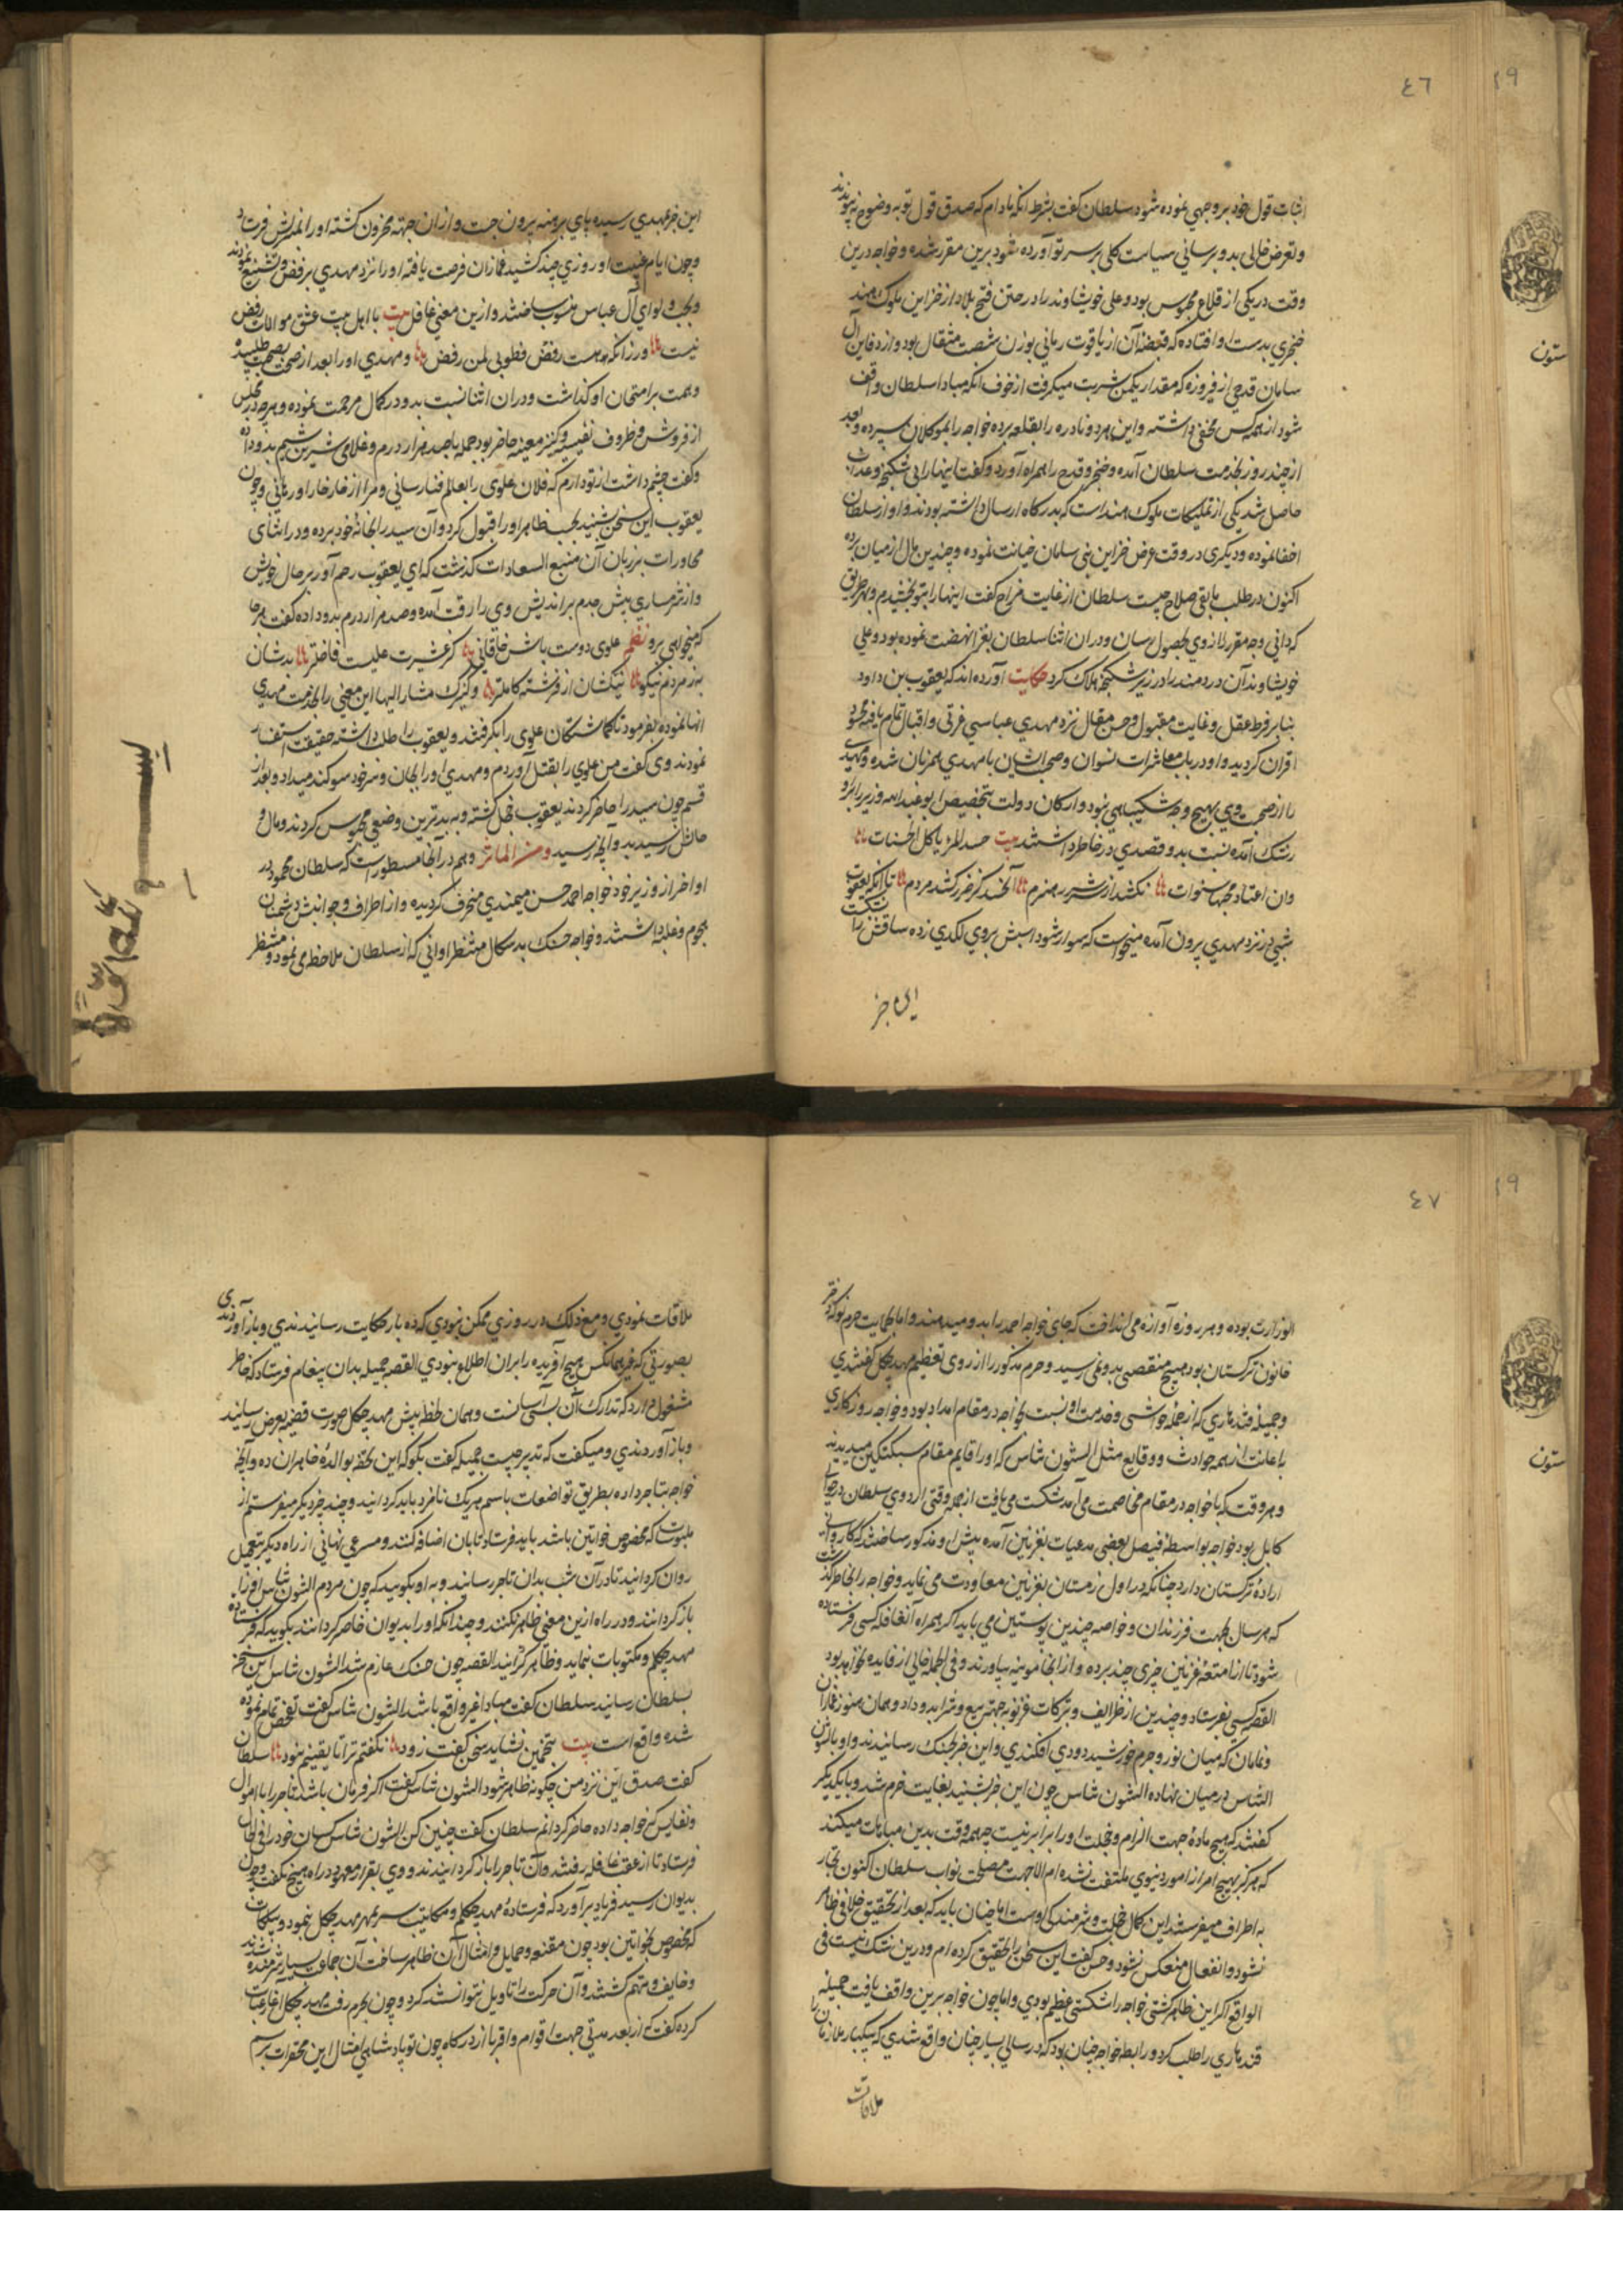 ٤٦
اثبات قول خود بر وجهی نموده شود سلطان گفت بشرط انکه مادام که صدق قول تو به وضوح نپیوندد
و تعرض خالی بدو برسانی سیاست کلی بر سر تو آورده شود برین مقرر شده و خواجه درین
وقت در یکی از قلاع محبوس بود و علی خویشاوند را در حین فتح بلاد از خزاین ملوک هند
خنجری بدست او افتاده که قبضه آن از یاقوت رمانی بوزن شصت مثقال بود و از دفاین آل
سامان قدحی از فیروزه که مقدار یکمن شربت میگرفت از خوف انکه مبادا سلطان واقف
شود از همه کس مخفی داشته و این هر دو نادره را بقلعه برده خواجه را بموکلان سپرده و بعد
از چند روز بخدمت سلطان آمده و خنجر و قدح را همراه آورد و گفت اینها را بی شکنجه و عذاب
حاصل شد یکی از تملیکات ملوک هند است که بدرگاه ارسال داشته بودند و او از سلطان
اخفا نموده و دیگری در وقت عرض خزاین بنی سامان خیانت نموده و چندین مال از میان برده
اکنون در طلب مابقی صلاح چیست سلطان از غایت مزاج گفت اینها را بتو بخشیدم و بهر طریق
که دانی وجه مقرر را از وی بحصول رسان و در ان اثنا سلطان بغزا نهضت نموده بود و علی
خویشاوند آن دردمند را در زیر شکنجه هلاک کرد حکایت آورده اند که یعقوب بن داود
بنابر فرط عقل و غایت مقبول و حسن مقال نزد مهدی عباسی غرتی و اقبال تمام یافته محسود
اقران گردید و او در باب معاشرات نسوان و صحبت ایشان با مهدی همزبان شده و مهدی
را از صحبت وی بهیچ وجه شکیبایی نبود و ارکان دولت بتخصیص ابو عبدالله وزیر را برو
رشک آمده نسبت بدو قصدی در خاطر داشتند بیت حسد المرء یاکل الحسنات
وان اعتاد مجها سنوات نکشد از شرر هنرم آنحسد کز خر کشد مردم تا آنکه یعقوب
شبی از نزد مهدی بیرون آمده میخواست که سوار شود اسبش بروی لگدی زده ساقش را بشکست
این خبر
این خبر بمهدی رسیده پای برهنه بیرون جست و از ان جهته محزون گشته او را بمنزلش فرستاد
و چون ایام غیبت او روزی چند کشید غمازان فرصت یافته او را نزد مهدی برفض و تشیع نمودند
و بحب و لوای آل عباس منسوب ساختند و ازین معنی غافل بیت با اهل بیت عشق موالات رفض
نیست ور زانکه هست رفض فطوبی لمن رفض و مهدی او را بعد از صحت بصحبت طلبیده
و همت بر امتحان او گماشت و در ان اثنا نسبت بدو در کمال مرحمت نموده و هر چه در مجلس
از فروش و ظروف نفیسه و کنیز معینه حاضر بود جمله با صد هزار درم و غلامی شیرین شیم بدو داده
و گفت چشم داشت از تو دارم که فلان علوی را بعالم فنا رسانی و مرا از خارخار او رهانی و چون
یعقوب این سخن شنید بحسب ظاهر او را قبول کرد و آن سید را بخانه خود برده و در اثنای
محاورات بر زبان آن منبع السعادات گذشت که ای یعقوب رحم آور بر حال خویش
و از شرمساری پیش جدم براندیش وی را رقت آمده و صد هزار درم بدو داده گفت هر جا
که میخواهی برو نظم علوی دوست باش خاقانی کز عشیرت علیست فاضلتر بدشان
به ز مردم نیکو نیکشان از فرشته کاملتر و کنیزک مشار الیها این معنی را بخدمت مهدی
انها نموده بفرمود تا گماشتگان علوی را بگرفتند و یعقوب را طلب داشته حقیقت استفسار
نمودند وی گفت من علوی را بقتل آوردم و مهدی او را بجان و سر خود سوگند میداد و بعد از
قسم چون سید را حاضر کردند یعقوب خجل گشته و به بدترین وضعی محبوس کردند و مال و
حالش رسید بدو آنچه رسید و من المآثر و هم در آنجا مسطور است که سلطان محمود در
اواخر از وزیر خود خواجه احمد حسن میمندی منحرف گردیده و از اطراف و جوانبش دشمنان
هجوم و غلبه داشتند و خواجه حسنک بدسکال منتظر اوانی که از سلطان ملاحظه می نمود و منتظر
٤٧
الوزارت بوده و هر روزه آوازه می انداخت که جای خواجه احمد را بدو میدهند و اما بحمایت حرم نوکه دختر
خانون ترکستان بود هیچ منقصتی بدو نمی رسید و حرم مذکور را از روی تعظیم مهد چگل گفتندی
و جمیله قندهاری که از جمله حواشی و خدمت او نسبت بخواجه در مقام امداد بود و خواجه روزگاری
باعانت از همه حوادث و وقایع مثل التون تاش که او را قایم مقام سبکتکین میدیدند
و هر وقت که با خواجه در مقام مخاصمت می آمد شکست می یافت از جمله وقتی اردوی سلطان در حوالی
کابل بود خواجه بواسطه فیصل بعضی مدعیات بغزنین آمده پیش او مذکور ساختند که کاروانی
اراده ترکستان دارد چنانکه در اول زمستان بغزنین معاودت می نماید و خواجه را بخاطر گذشت
که هر سال بجهت فرزندان و خواصه چندین پوستین می باید اگر همراه آن قافله کسی فرستاده
شود تا از امتعه غزنین چیزی چند برده و از انجا مویینه بیاورند و فی الجمله خالی از فایده نخواهد بود
القصه کسی بفرستاد و چندین از ظرایف و تبرکات غزنویه جهته بیع و شرا بدو داد و همان هنوز غمازان
و نمامان که میان نور و جرم خورشید دودی افکندی و این خبر بحسنک رسانیدند و او با التون
تاش در میان نهاده التون تاش چون این خبر شنید بغایت خرم شد و با یکدیگر
گفتند که هیچ ماده جهت الزام و خجلت او را برابر نیست چه همه وقت بدین مباهات میکند
که هرگز بهیچ امر از امور دنیوی ملتفت نشده ام الا جهت مصلحت نواب سلطان اکنون تجار
به اطراف میفرستد این کمال خجلت و شرمندگی اوست اما چنان باید که بعد از تحقیق خلافی ظاهر
نشود و انفعال منعکس نشود و حسن گفت این سخن را تحقیق کرده ام و درین شک نیست فی
الواقع اگر این ظاهر گشتی خواجه را شکستی عظیم بودی و اما چون خواجه برین واقف یافت جمیله
قندهاری را طلب کرد و رابطه خواجه چنان بود که در سالی بسیار چنان واقع شدی که یکبار ملازمان را
ملاقات
ملاقات نمودی و مع ذلک در روزی ممکن نبودی که ده بار حکایت رسانیدندی و باز آوردندی
بصورتی که غیر همانکس هیچ آفریده را بر ان اطلاع نبودی القصه جمیله بدان پیغام فرستاد که خاطر
مشغول ندارد که تدارک آن بسی آسانست و همان لحظه پیش مهد چگل صورت قضیه بعرض رسانید
و باز آوردندی و میگفت که تدبیر چیست جمیله گفت بگو که این تحفه بوالده و خاهران ده و آنچه
خواجه بتاجر داده بطریق تواضعات باسم هر یک نامزد باید گردانید و چند چیز دیگر میفرستم از
ملبوسات که مخصوص خواتین باشد باید فرستاد تا بان اضافه کنند و مسرعی نهانی از راه دیگر بتعجیل
روان گردانید تا در آن شب بدان تاجر رسانند و به او بگویید که چون مردم التون تاش او را
باز گردانند و در راه ازین معنی ظاهر نکنند و چندانکه او را بدیوان حاضر گردانند بگوید که فرستاده
مهد چگلم و مکتوبات بنماید و ظاهر گرداند القصه چون حسنک عازم شد التون تاش این سخن
بسلطان رسانید سلطان گفت مبادا غیر واقع باشد التون تاش گفت تفحص تمام نموده
شده واقع است بیت بتخمین نشاید سخن گفت زود نگفتم ترا تا یقینم نبود سلطان
گفت صدق این نزد من چگونه ظاهر شود التون تاش گفت اگر فرمان باشد تاجر را با اموال
و نفایس که خواجه داده حاضر گردانم سلطان گفت چنین کن التون تاش کسان خود را فی الحال
فرستاد تا از عقب قافله رفتند و آن تاجر را باز گردانیدند و وی بقرار معهود در راه هیچ نگفت و چون
بدیوان رسید فریاد برآورد که فرستاده مهد چگلم و مکاتیب سر بمهر مهد چگل بنمود و بیلکات
که مخصوص بخواتین بود چون مقنعه و حمایل و امثال آن ظاهر ساخت آن جماعت بسیار شرمنده شدند
و خایف و متهم گشتند و آن حرکت را تاویل نتوانستند کرد و چون بحرم رفت مهد چگل آغاز عتاب
کرده گفت که از بعد مدتی جهت اقوام و اقربا از درگاه چون تو پادشاهی امثال این محقرات برسم
ستون
ستون